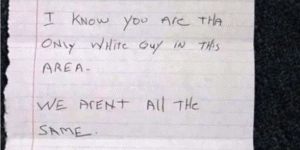 I KNOW YOU ARE THA
ONLY WHITE GUY IN THIS
AREA.
WE ARENT All THE
SAME.